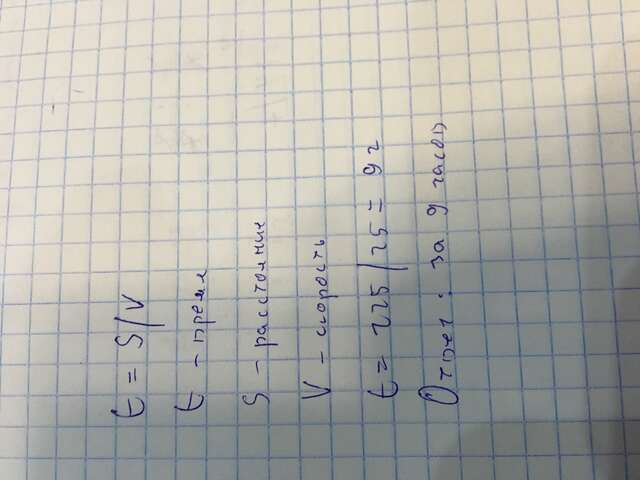 t = S/V
t - время
S - расстояние
V - скорость
t = 225/25 = 9ч
Ответ: за 9 часов